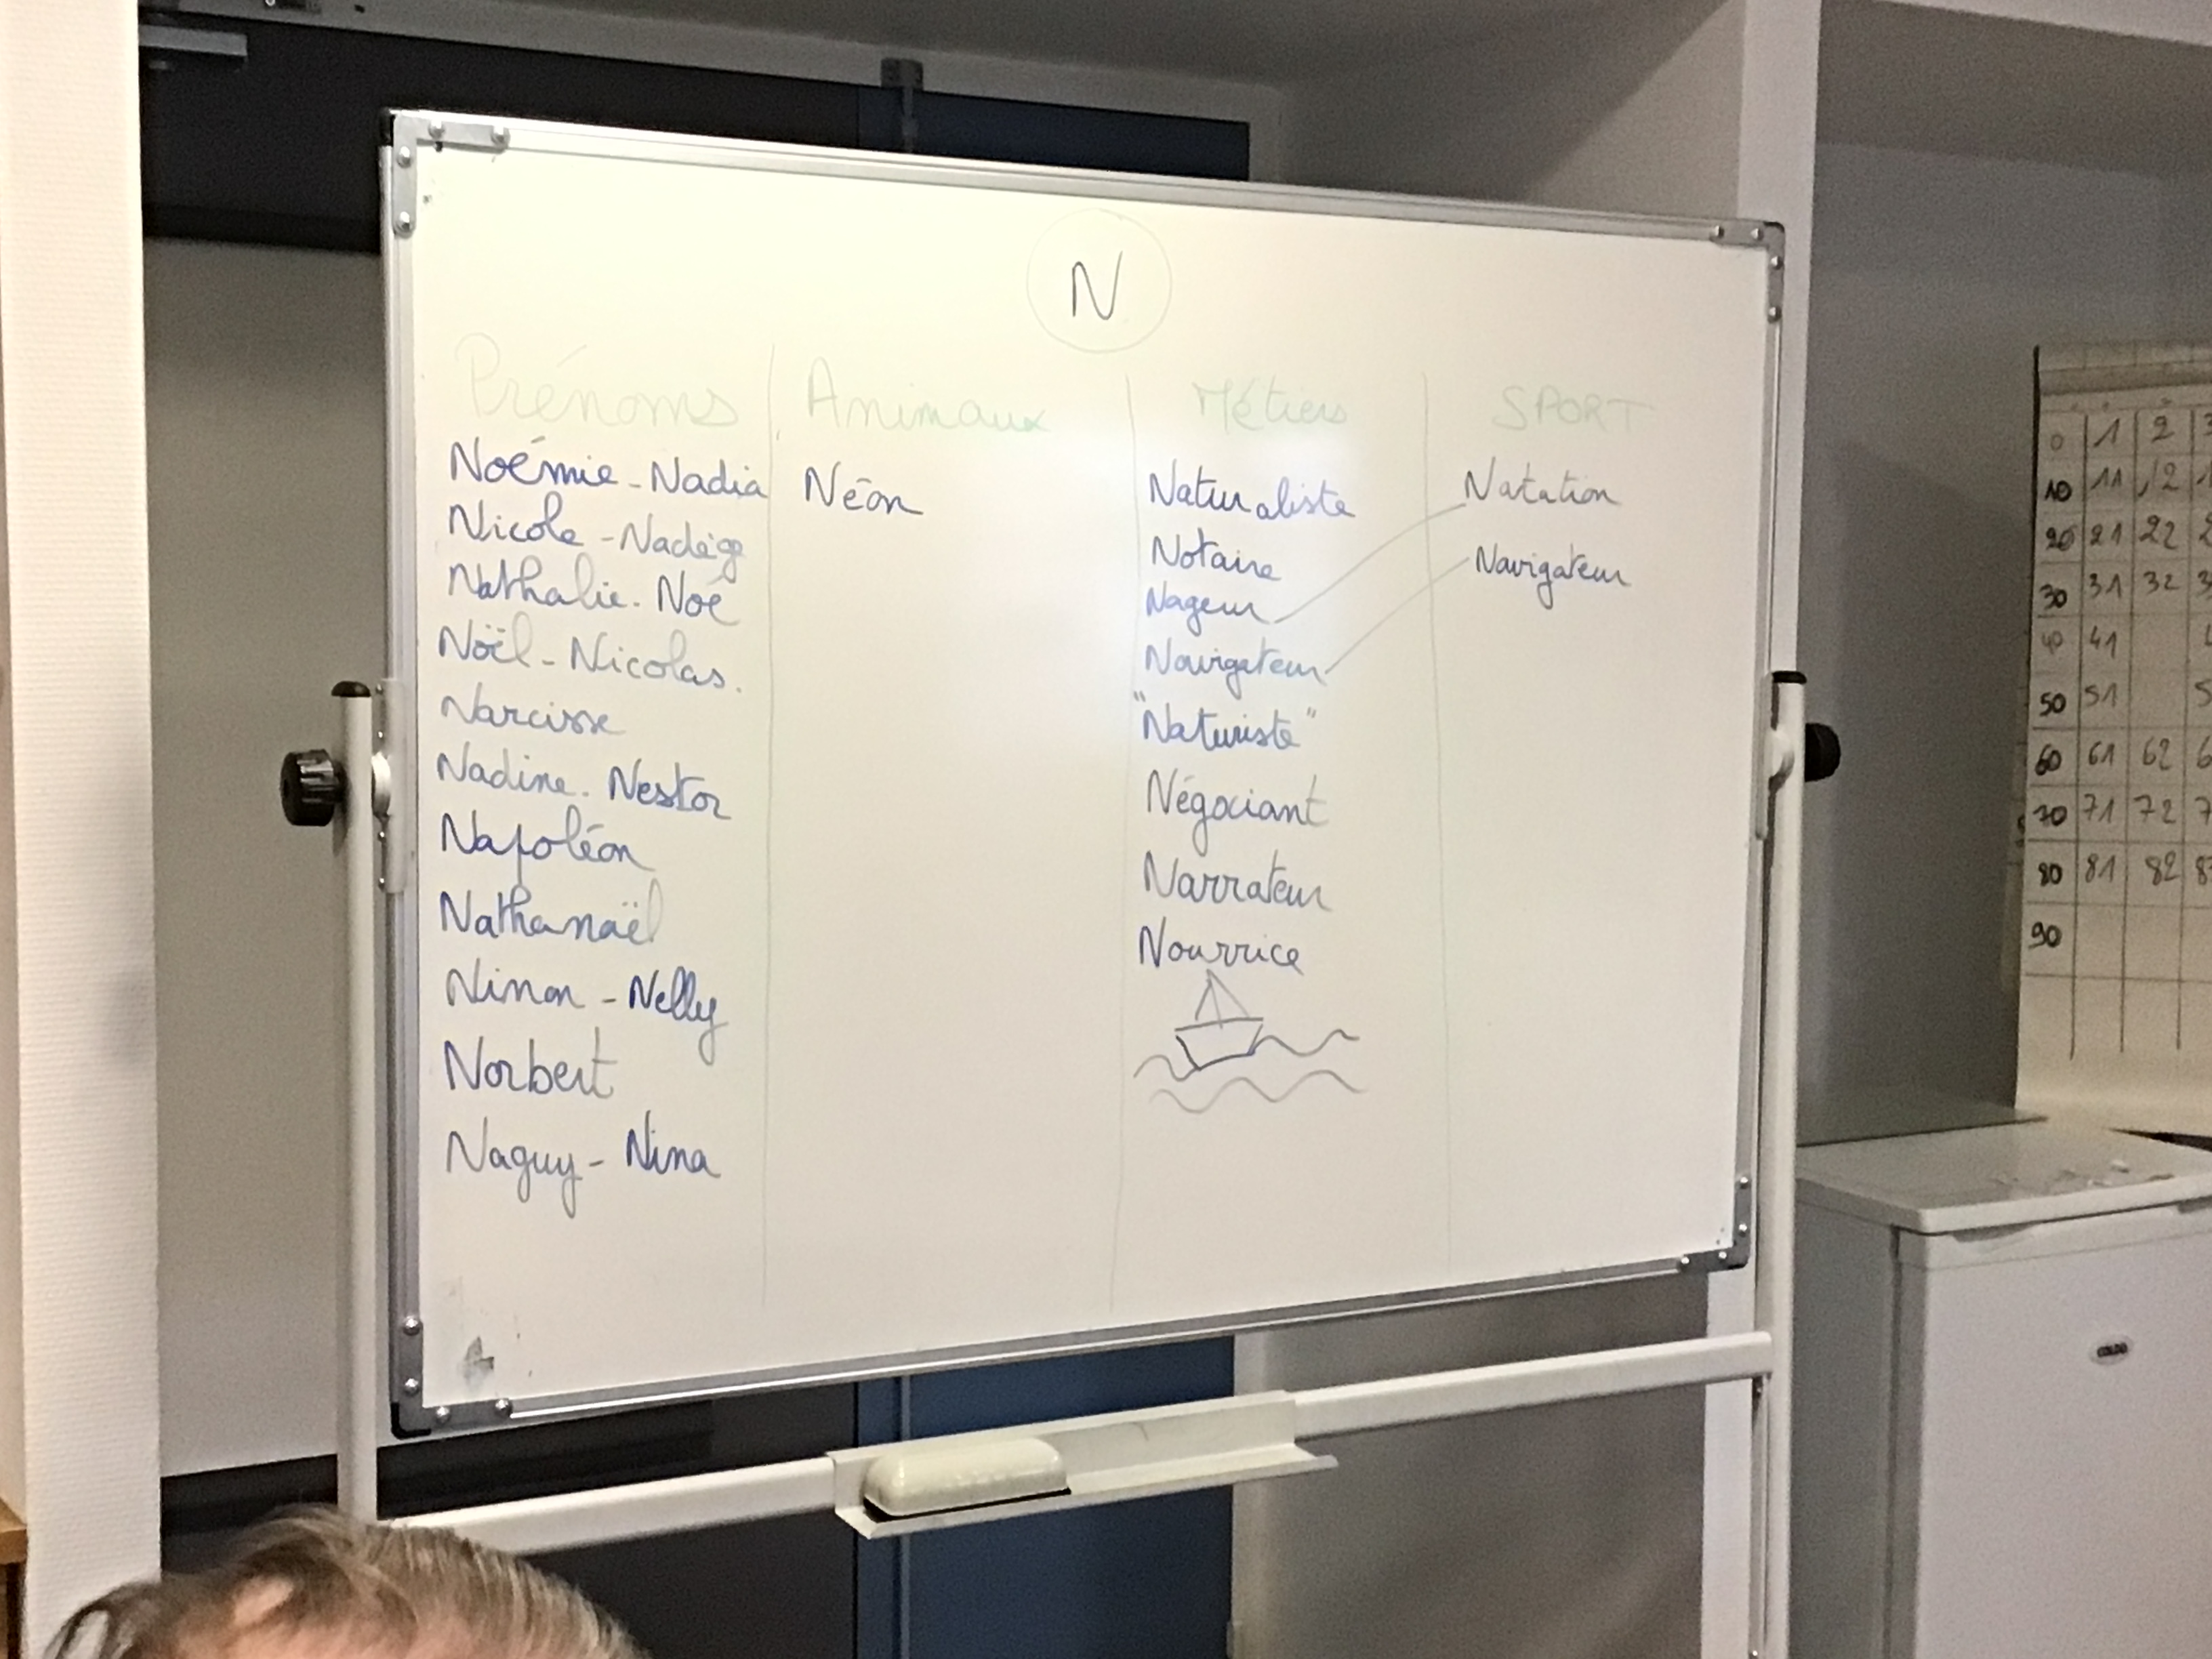 N
Prénoms
Noémie - Nadia
Nicole - Nadège
Nathalie - Noé
Noël - Nicolas.
Narcisse
Nadine - Nestor
Napoléon
Nathanaël
Ninon - Nelly
Norbert
Naguy - Nina
Animaux
Néon
Métiers
Naturaliste
Notaire
Nageur
Navigateur
"Naturiste"
Négociant
Narrateur
Nourrice
SPORT
Natation
Navigateur
0 1 2 3
10 11 12 1
20 21 22 2
30 31 32 3
40 41 4
50 51 5
60 61 62 6
70 71 72 7
80 81 82 83
90